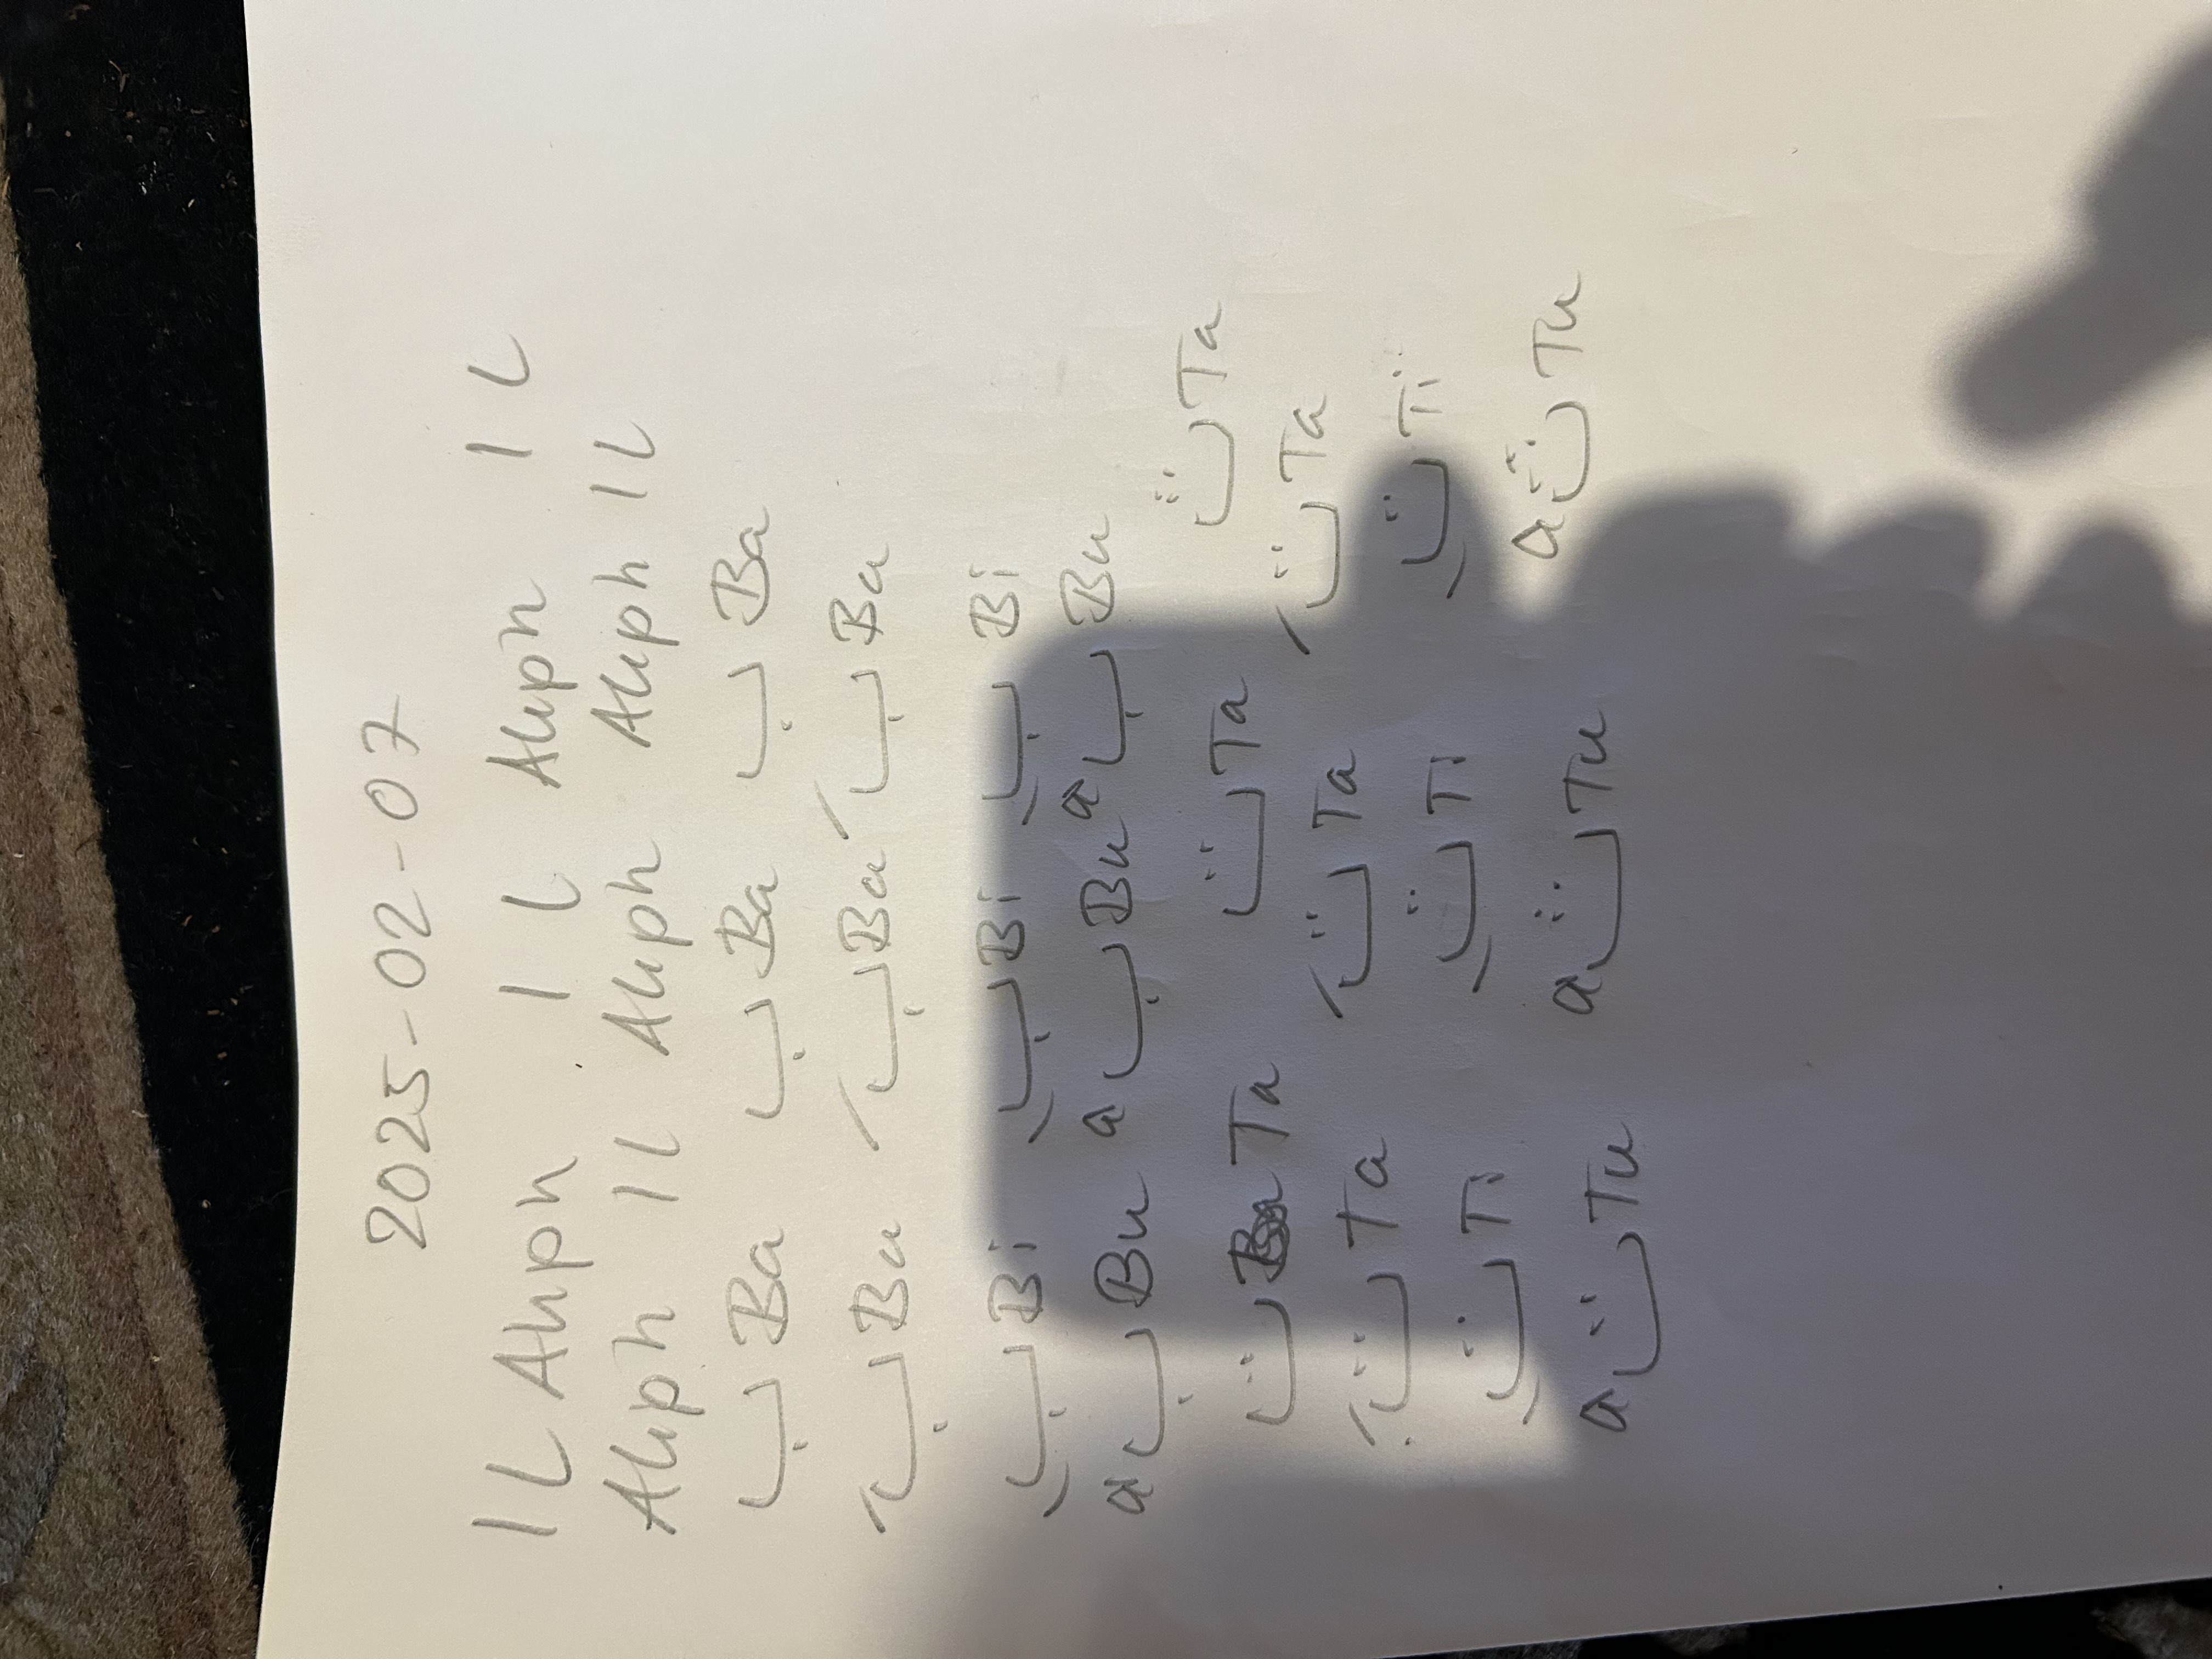 2025-02-07
ا L Aliph ا L Aliph ا L
Aliph ا L Aliph Aliph ا L
ب Ba ب Ba ب Ba
بَ Ba بَ Ba بَ Ba
بِ Bi بِ Bi بِ Bi
بُ Bu بُ Bu بُ Bu
ت Ta ت Ta ت Ta
تَ Ta تَ Ta تَ Ta
تِ Ti تِ Ti تِ Ti
تُ Tu تُ Tu تُ Tu